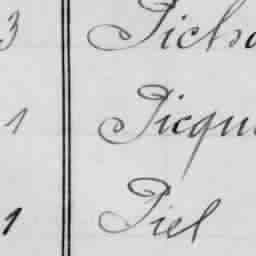 3 Picho
1 Picqu
1 Piel